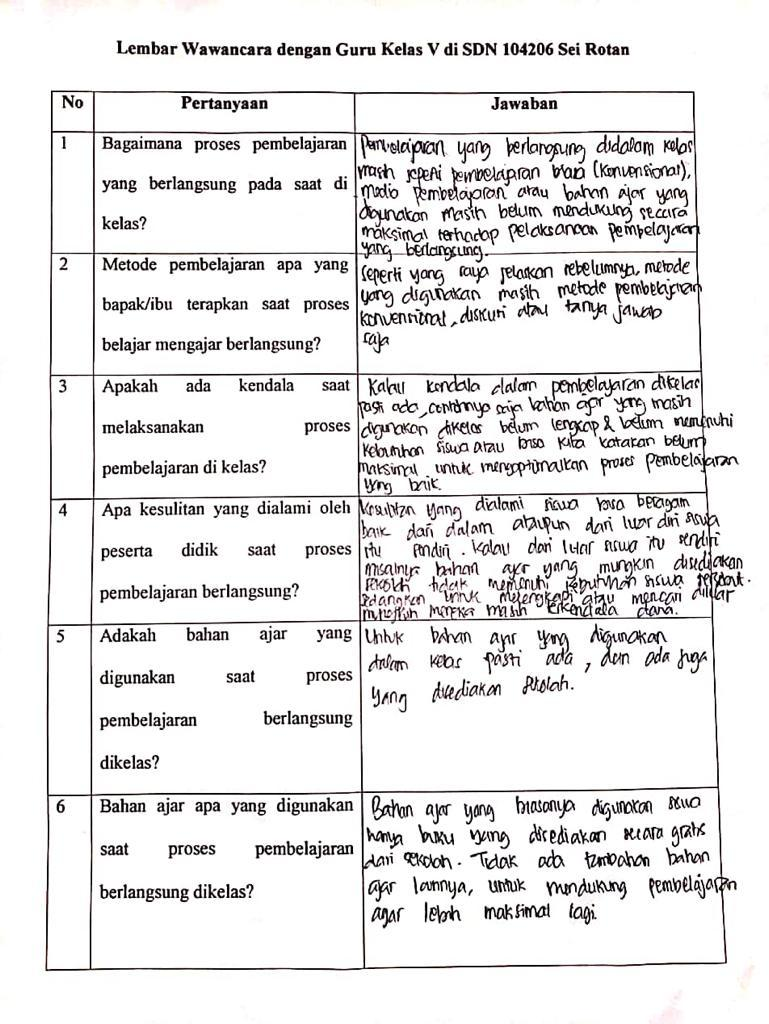 Lembar Wawancara dengan Guru Kelas V di SDN 104206 Sei Rotan
No Pertanyaan Jawaban
1 Bagaimana proses pembelajaran
yang berlangsung pada saat di
kelas?
Pembelajaran yang berlangsung didalam kelas
masih seperti pembelajaran biasa (konvensional),
media pembelajaran atau bahan ajar yang
digunakan masih belum mendukung secara
maksimal terhadap pelaksanaan pembelajaran
yang berlangsung.
2 Metode pembelajaran apa yang
bapak/ibu terapkan saat proses
belajar mengajar berlangsung?
Seperti yang saya jelaskan sebelumnya, metode
yang digunakan masih metode pembelajaran
konvensional, diskusi atau tanya jawab
saja
3 Apakah ada kendala saat
melaksanakan proses
pembelajaran di kelas?
Kalau kendala dalam pembelajaran dikelas
pasti ada, contohnya saja bahan ajar yang masih
digunakan dikelas belum lengkap & belum memenuhi
kebutuhan siswa atau bisa kita katakan belum
maksimal untuk mengoptimalkan proses pembelajaran
yang baik.
4 Apa kesulitan yang dialami oleh
peserta didik saat proses
pembelajaran berlangsung?
Kesulitan yang dialami siswa bisa beragam
baik dari dalam ataupun dari luar diri siswa
itu sendiri. Kalau dari luar siswa itu sendiri
misalnya bahan ajar yang mungkin disediakan
sekolah tidak memenuhi kebutuhan siswa tersebut.
Sedangkan untuk melengkapi atau mencari diluar
mereka masih terkendala dana.
5 Adakah bahan ajar yang
digunakan saat proses
pembelajaran berlangsung
dikelas?
Untuk bahan ajar yang digunakan
dalam kelas pasti ada, dan ada juga
yang disediakan sekolah.
6 Bahan ajar apa yang digunakan
saat proses pembelajaran
berlangsung dikelas?
Bahan ajar yang biasanya digunakan siswa
hanya buku yang disediakan secara gratis
dari sekolah. Tidak ada tambahan bahan
ajar lainnya, untuk mendukung pembelajaran
agar lebih maksimal lagi.